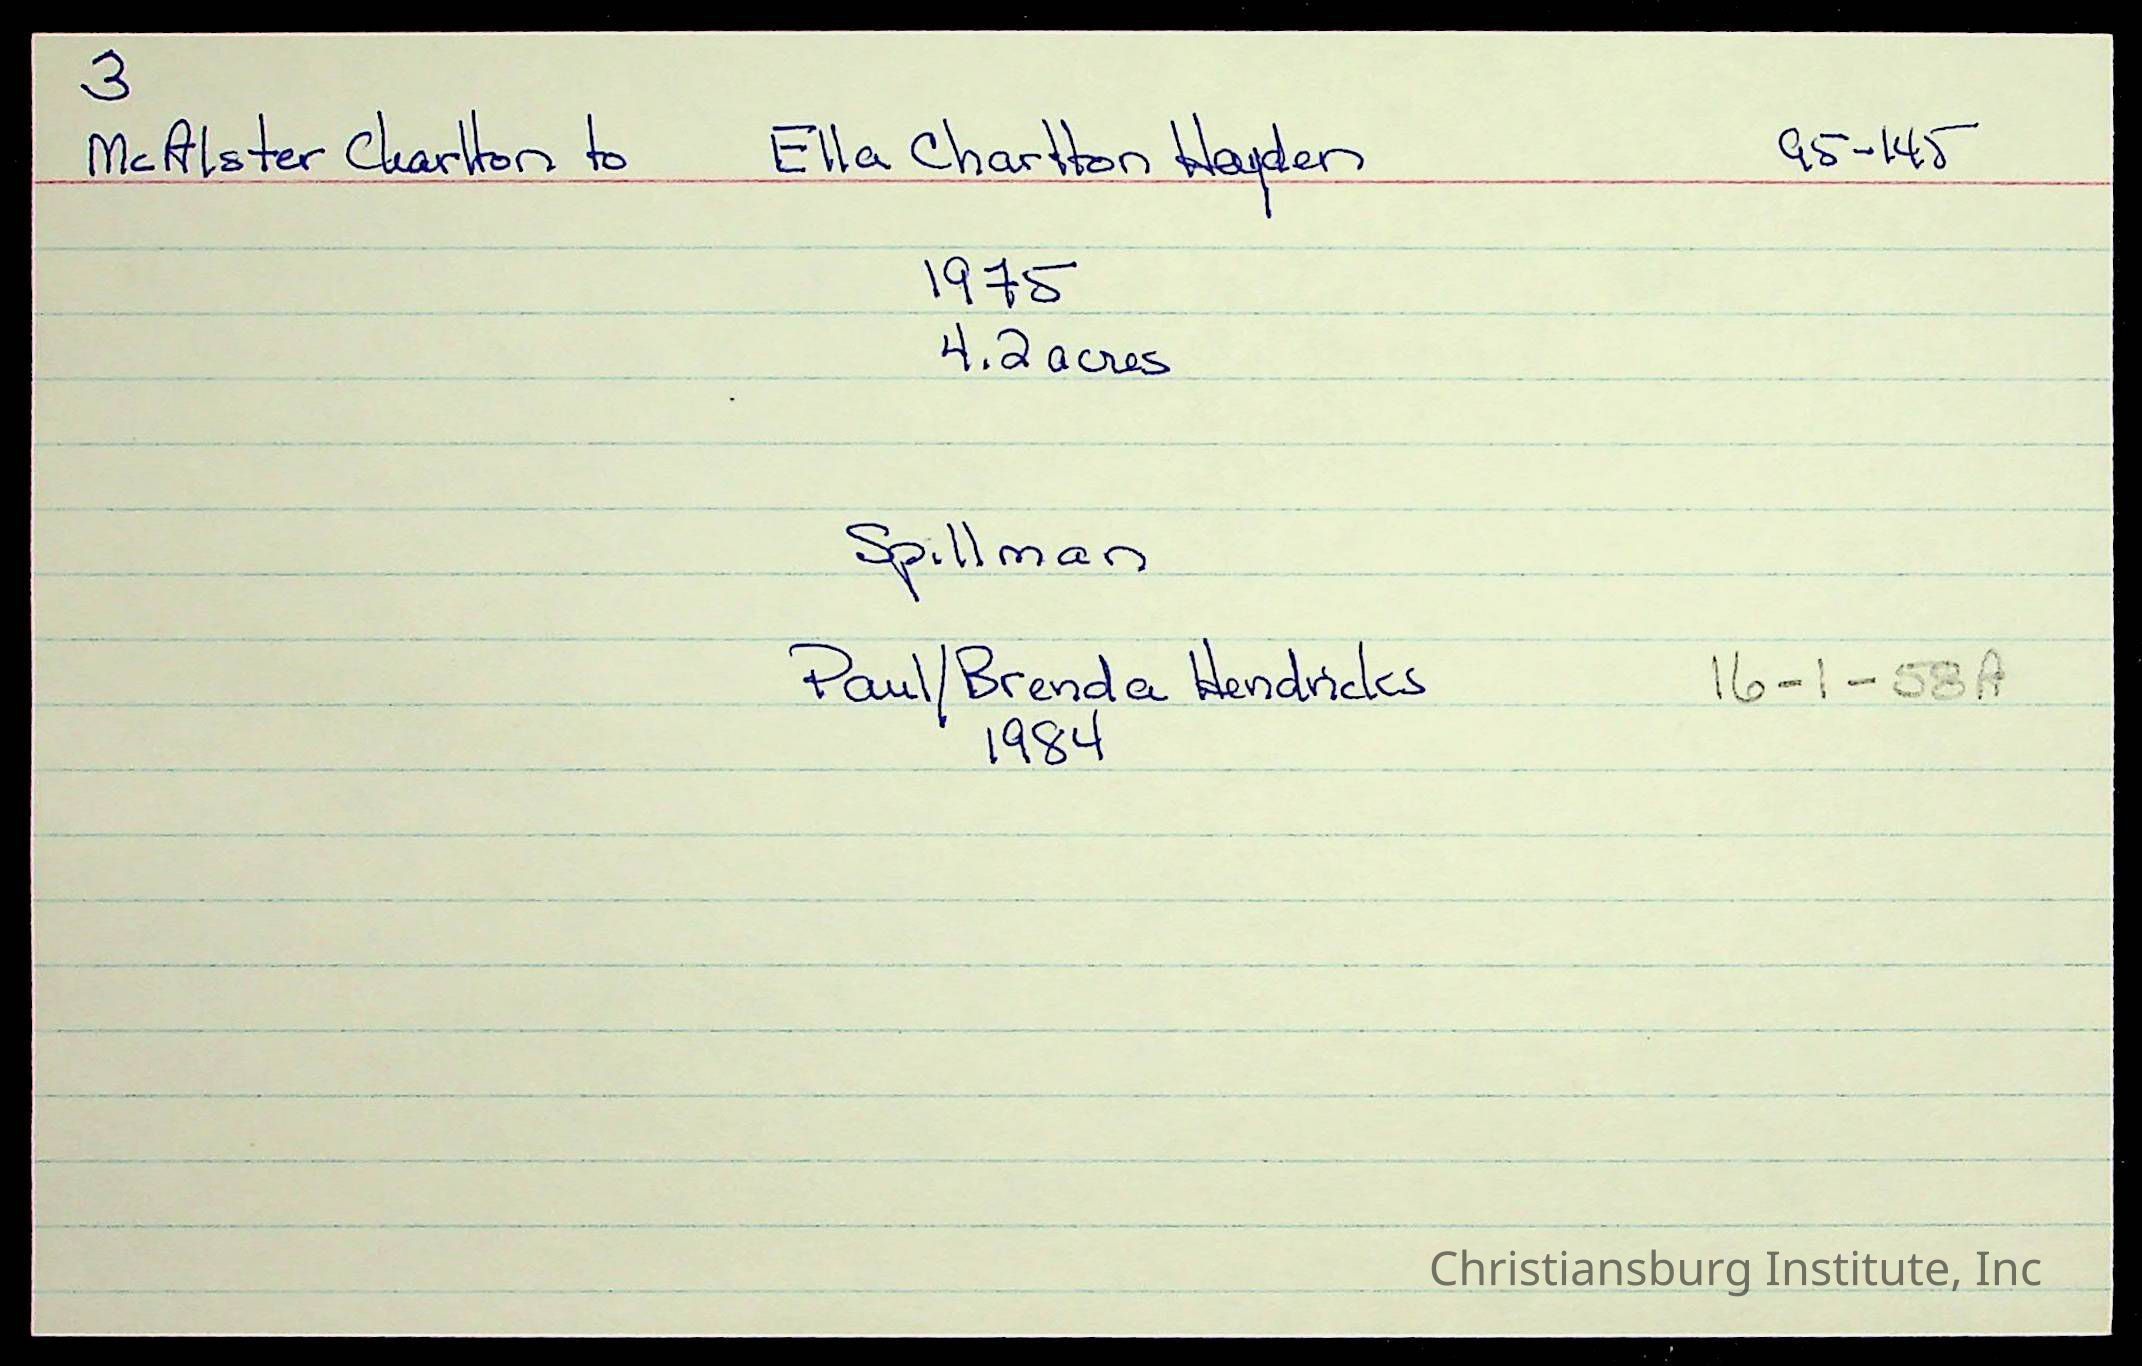 3
McAlster Charlton to Ella Charlton Hayden 95-145
1975
4.2 acres
Spillman
Paul/Brenda Hendricks 16-1-58A
1984
Christiansburg Institute, Inc